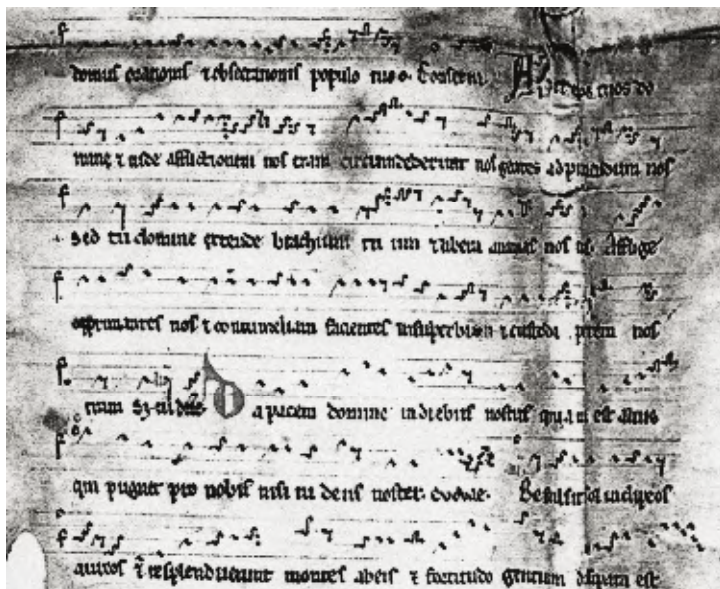 domus orationis ⁊ obsecrationis populo tuo. Conserva Aperi oculos tuos do
mine ⁊ uide afflictionem nostram circumdederunt nos gentes ad puniendum nos
Sed tu domine extende brachium tuum ⁊ libera animas nostras Afflige
opprimentes nos ⁊ contumeliam facientes in superbiam ⁊ custodi partem nos
tram Da pacem domine in diebus nostris quia non est alius
qui pugnet pro nobis nisi tu deus noster. euouae. Refulsit sol in clypeos
aureos ⁊ resplenduerunt montes ab eis ⁊ fortitudo gentium dissipata est